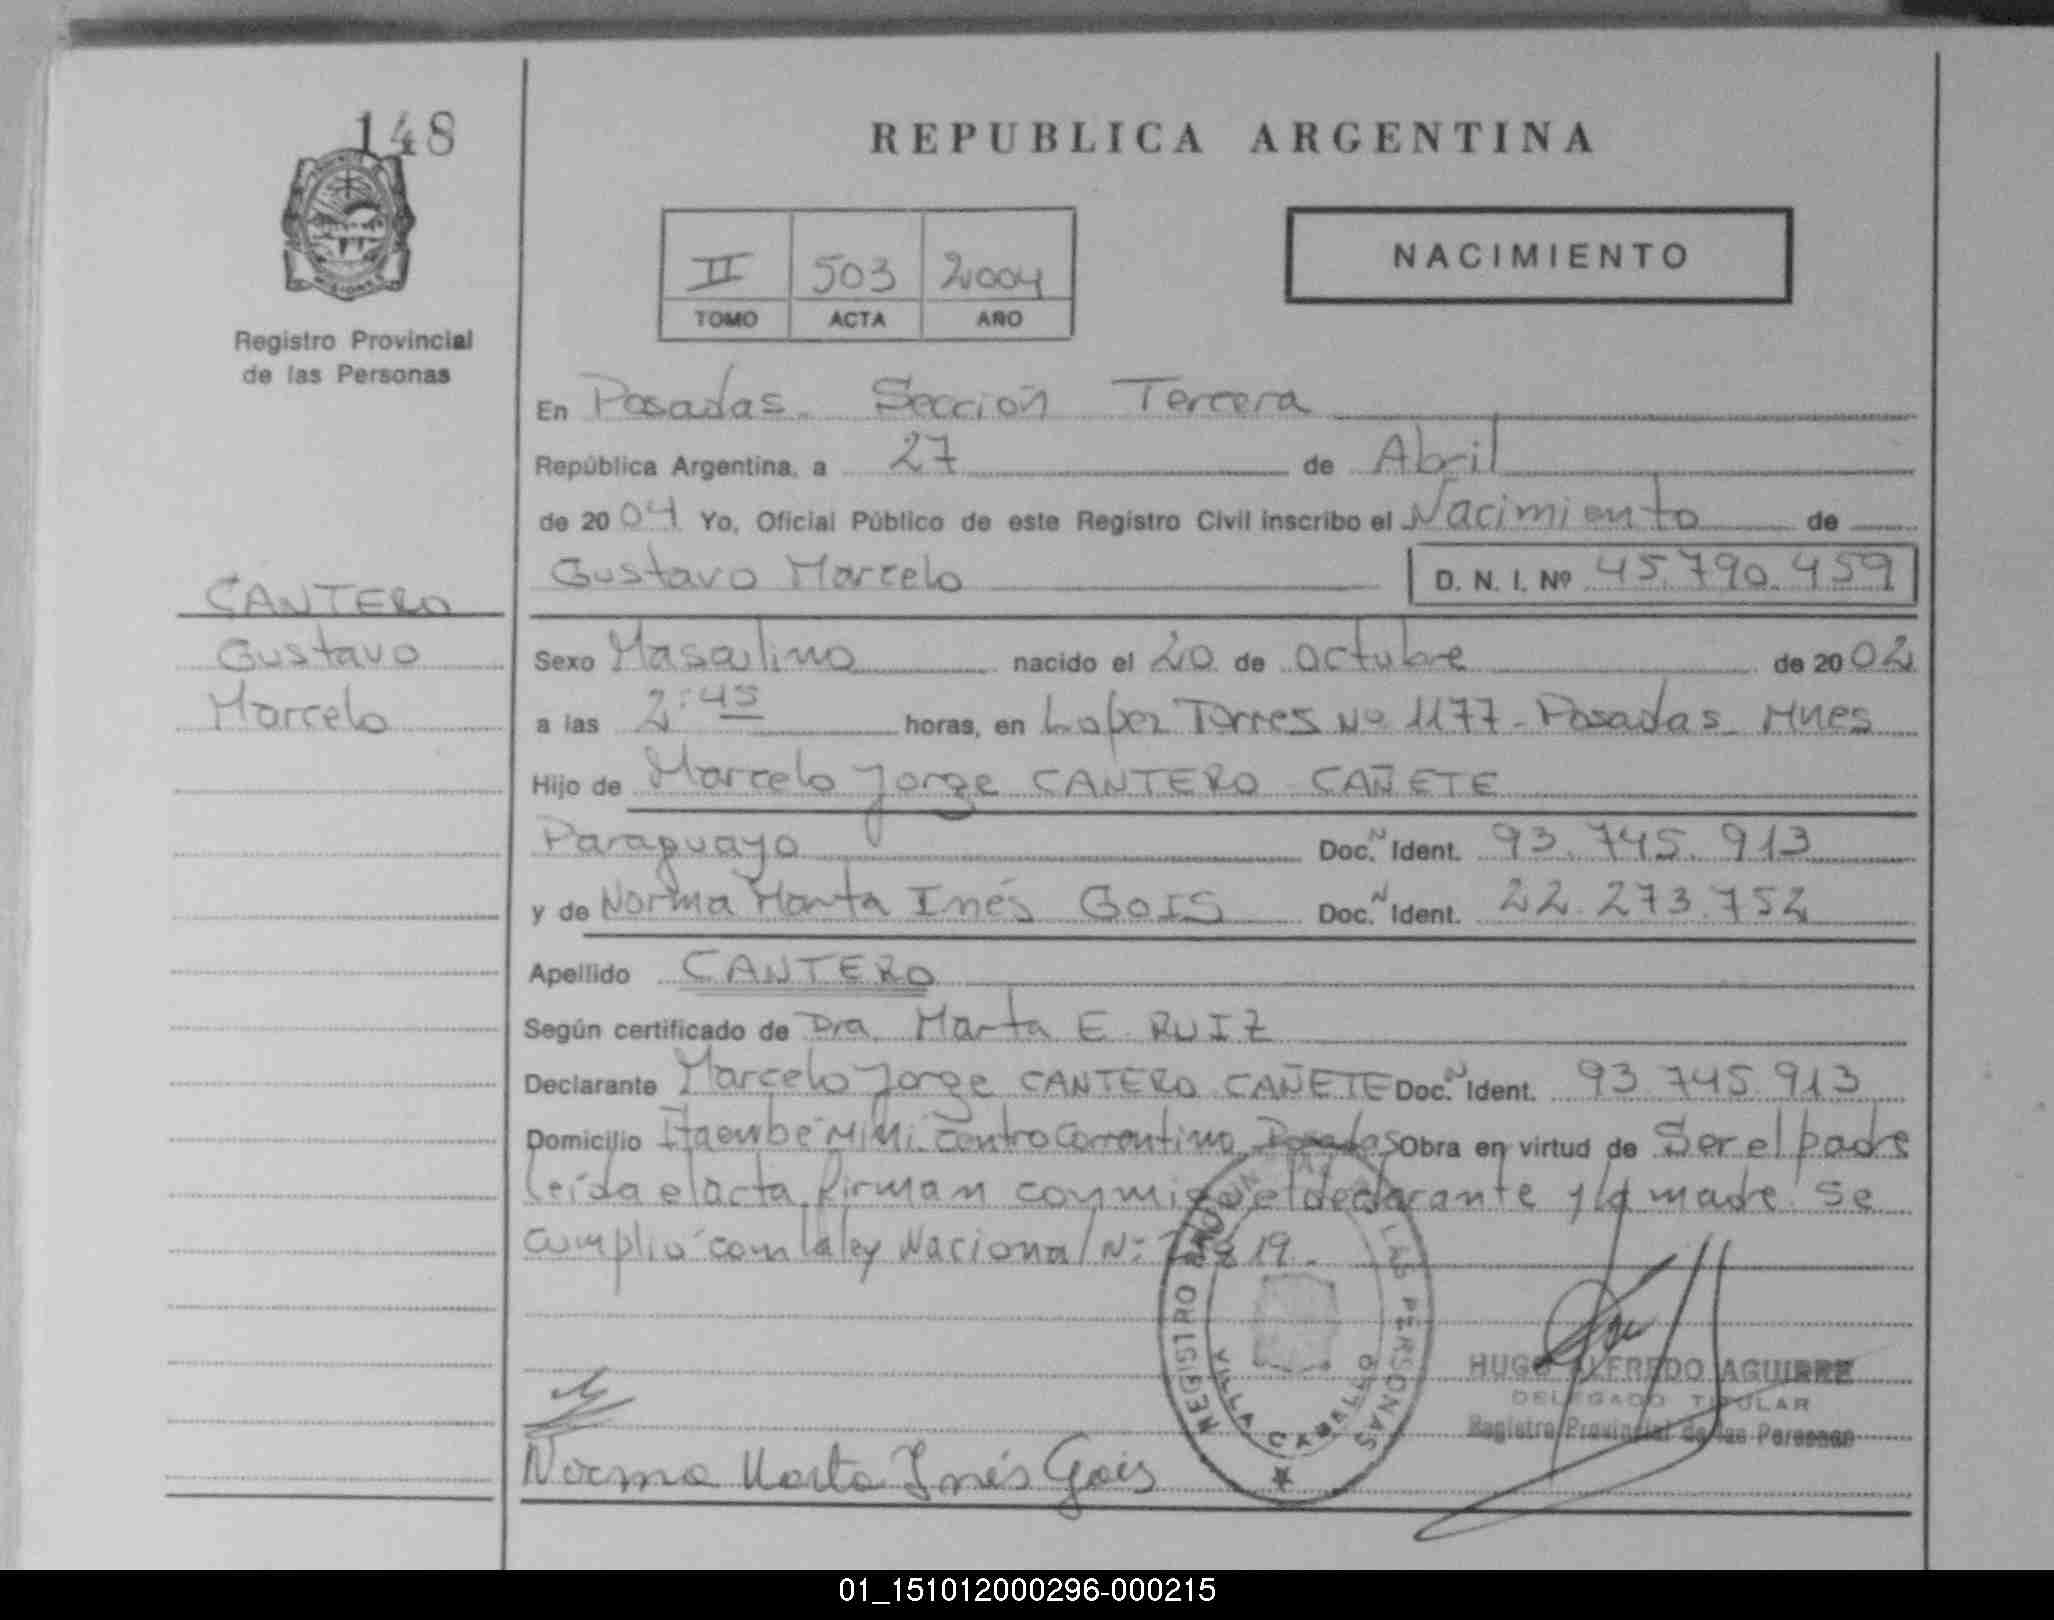 148
REPUBLICA ARGENTINA
II 503 2004
TOMO ACTA AÑO
NACIMIENTO
Registro Provincial
de las Personas
CANTERO
Gustavo
Marcelo
En Posadas. Sección Tercera
República Argentina, a 27 de Abril
de 2004 Yo, Oficial Público de este Registro Civil inscribo el Nacimiento de
Gustavo Marcelo D. N. I. Nº 45.790.459
Sexo Masculino nacido el 20 de octubre de 2002
a las 2:45 horas, en Lopez Torres Nº 1177 - Posadas Mnes
Hijo de Marcelo Jorge CANTERO CAÑETE
Paraguayo Doc. N Ident. 93.745.913
y de Norma Marta Inés GOIS Doc. N Ident. 22.273.752
Apellido CANTERO
Según certificado de Dra. Marta E. RUIZ
Declarante Marcelo Jorge CANTERO CAÑETE Doc. N Ident. 93.745.913
Domicilio Itaembé Mini. Centro Correntino Posadas Obra en virtud de Ser el padre
leída el acta, firman conmigo el declarante y la madre. Se
cumplió con la ley Nacional Nº
REGISTRO LAS PERSONAS
VILLA CABALLO
HUGO ALFREDO AGUIRRE
DELEGADO TITULAR
Registro Provincial de las Personas
Norma Marta Inés Gois
01_151012000296-000215